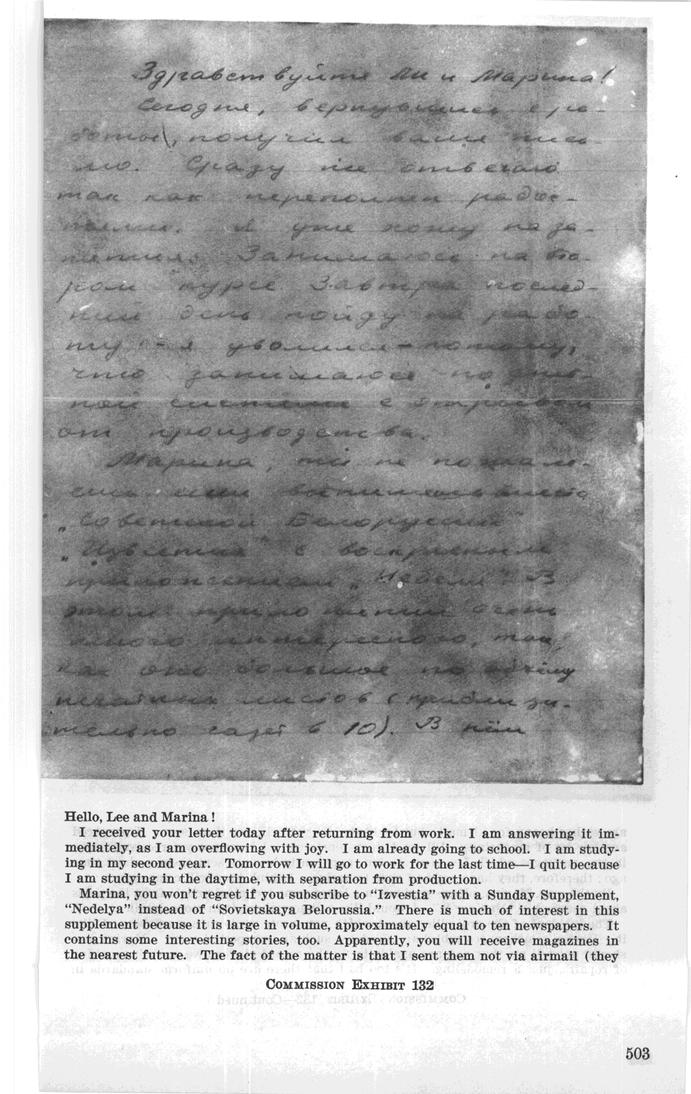 Здравствуйте Ли и Марина!
Сегодня, вернувшись с ра-
боты, получил ваше пись-
мо. Сразу же отвечаю
так как переполнен радос-
тями. Я уже хожу на за-
нятия. Занимаюсь на вто-
ром курсе. Завтра послед-
ний день пойду на рабо-
ту - я уволился - потому,
что занимаюсь по
ной системе с отрывом
от производства.
Марина, ты не пожале-
ешь если вместо
„Советской Белоруссии"
„Известия" с воскресным
приложением „Неделя". В
этом приложении очень
много интересного, так
как оно большое по объёму
печатных листов (приблизи-
тельно газет в 10). В нём
Hello, Lee and Marina!
I received your letter today after returning from work. I am answering it im-
mediately, as I am overflowing with joy. I am already going to school. I am study-
ing in my second year. Tomorrow I will go to work for the last time—I quit because
I am studying in the daytime, with separation from production.
Marina, you won't regret if you subscribe to "Izvestia" with a Sunday Supplement,
"Nedelya" instead of "Sovietskaya Belorussia." There is much of interest in this
supplement because it is large in volume, approximately equal to ten newspapers. It
contains some interesting stories, too. Apparently, you will receive magazines in
the nearest future. The fact of the matter is that I sent them not via airmail (they
COMMISSION EXHIBIT 132
503